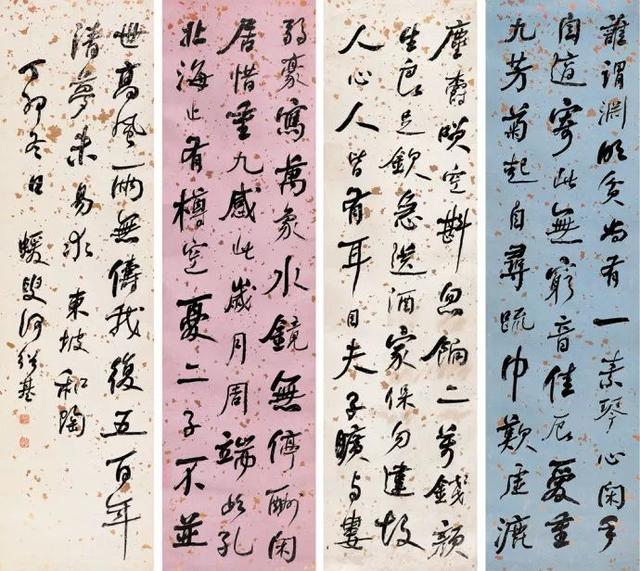 誰謂淵明貧尚有一素琴心閑手
自適寄此無窮音佳辰愛重
九芳菊起自尋疏巾歎虛漉
塵爵笑空斟忽餉二萬錢顏
生良足欽急送酒家保勿違故
人心人皆有耳目夫子曠与婁
弱豪寫萬象水鏡無停酬閑
居惜重九感此歲月周端如孔
北海止有樽空憂二子不並
世高風兩無儔我後五百年
清夢未易求 東坡和陶
丁卯冬日 蝯叟何紹基